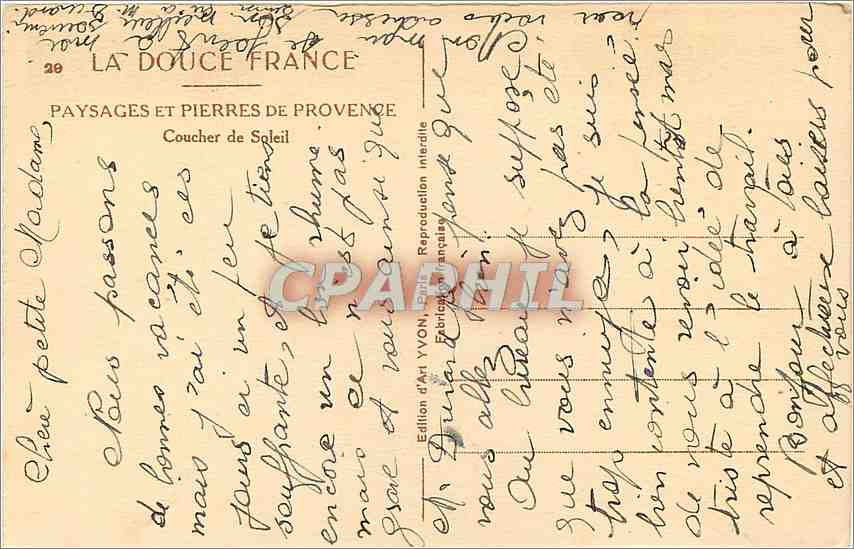 20 LA DOUCE FRANCE
PAYSAGES ET PIERRES DE PROVENCE
Coucher de Soleil
Edition d'Art YVON, Paris - Reproduction interdite
Fabrication française
CPARPHIL
Chère petite Madame,
Nous passons
de bonnes vacances
mais j'ai été ces
jours ci un peu
souffrante, et je tiens
encore un bon rhume
mais ce n'est pas
grave et vous ainsi que
M. Durand je pense que
vous allez bien.
Au bureau je suppose
que vous n'avez pas été
trop ennuyée, je suis
bien contente à la pensée
de vous revoir bientôt mais
triste à l'idée de
reprendre le travail.
Bonjour à tous
et affectueux baisers pour
vous
mon adresse